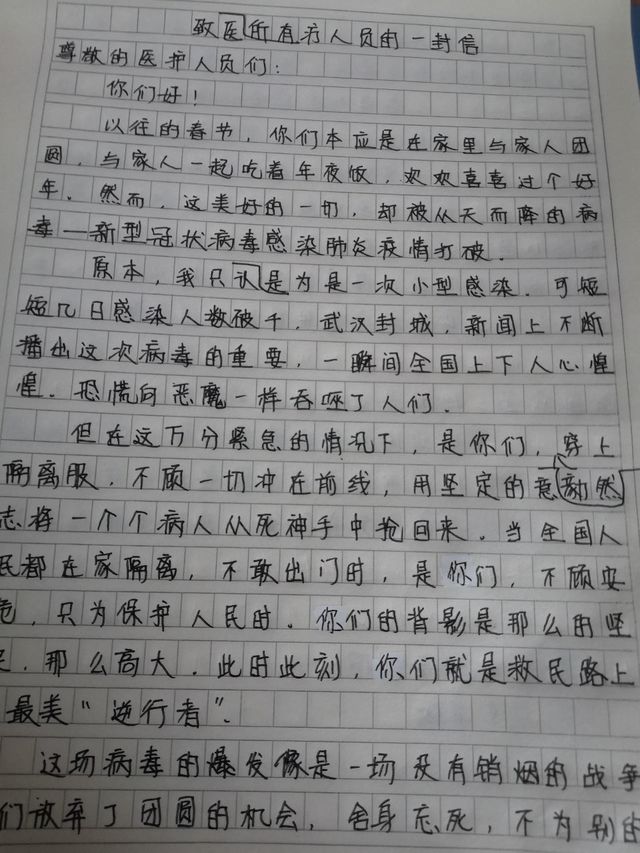 致医所有疗人员的一封信
尊敬的医护人员们：
你们好！
以往的春节，你们本应是在家里与家人团
圆，与家人一起吃着年夜饭，欢欢喜喜过个好
年。然而，这美好的一切，却被从天而降的病
毒—新型冠状病毒感染肺炎疫情打破。
原本，我只认是为是一次小型感染。可短
短几日感染人数破千，武汉封城，新闻上不断
播出这次病毒的重要，一瞬间全国上下人心惶
惶。恐慌向恶魔一样吞噬了人们。
但在这万分紧急的情况下，是你们，穿上
隔离服，不顾一切冲在前线，用坚定的意
毅然
志将一个个病人从死神手中抢回来。当全国人
民都在家隔离，不敢出门时，是你们，不顾安
危，只为保护人民时。你们的背影是那么的坚
定，那么高大。此时此刻，你们就是救民路上
最美“逆行者”。
这场病毒的爆发像是一场没有销烟的战争
们放弃了团圆的机会，舍身忘死，不为别的